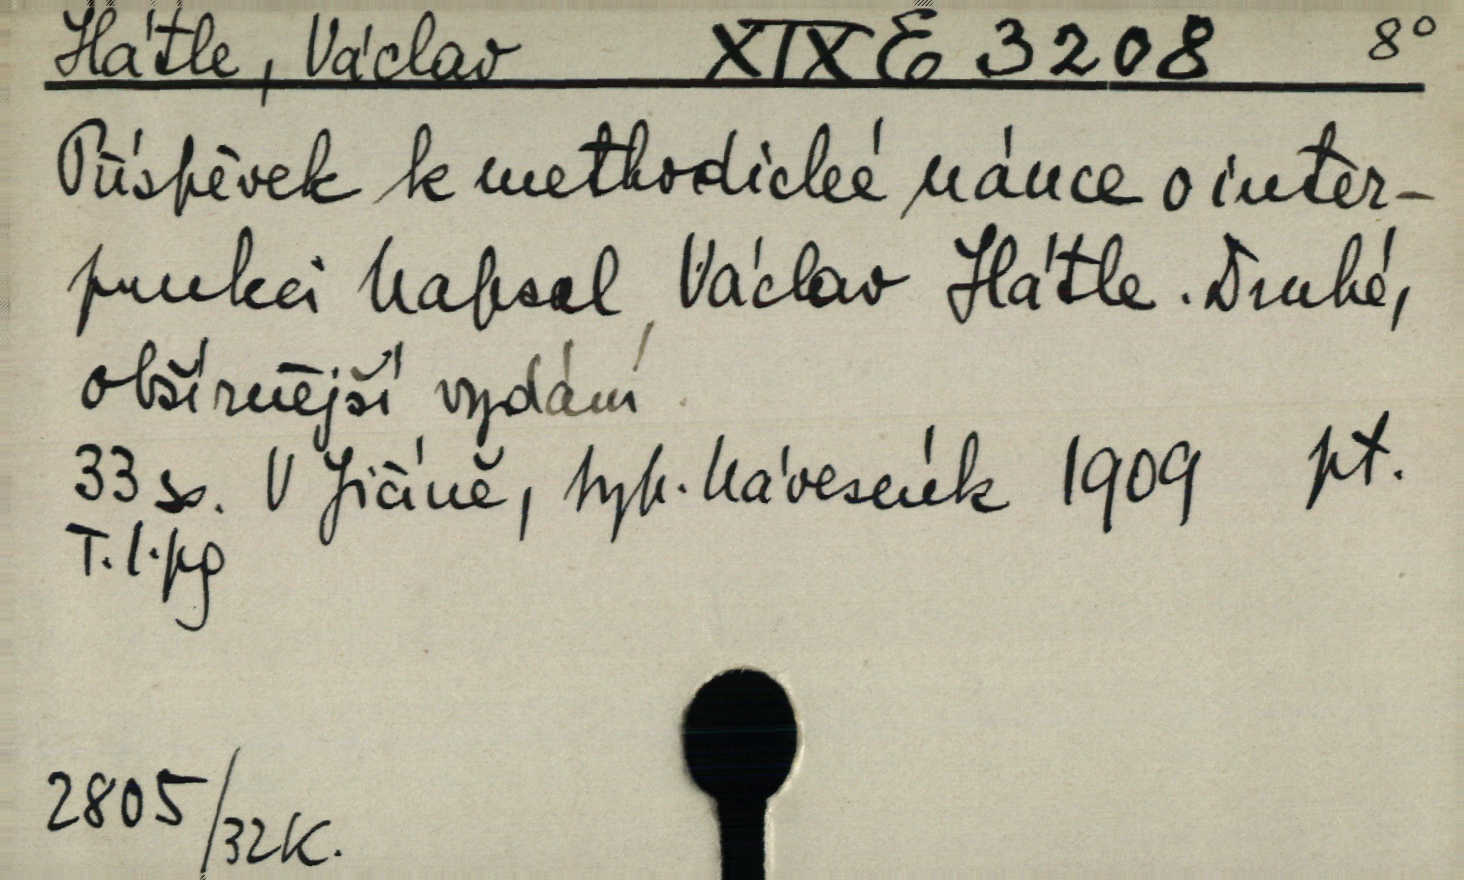 Hátle, Václav XIX E 3208 8°
Příspěvek k methodické nauce o inter-
punkci Napsal Václav Hátle. Druhé,
obšírnější vydání
33 s. V Jičíně, typ. 1909 př.
T. l. pg
2805/32K.